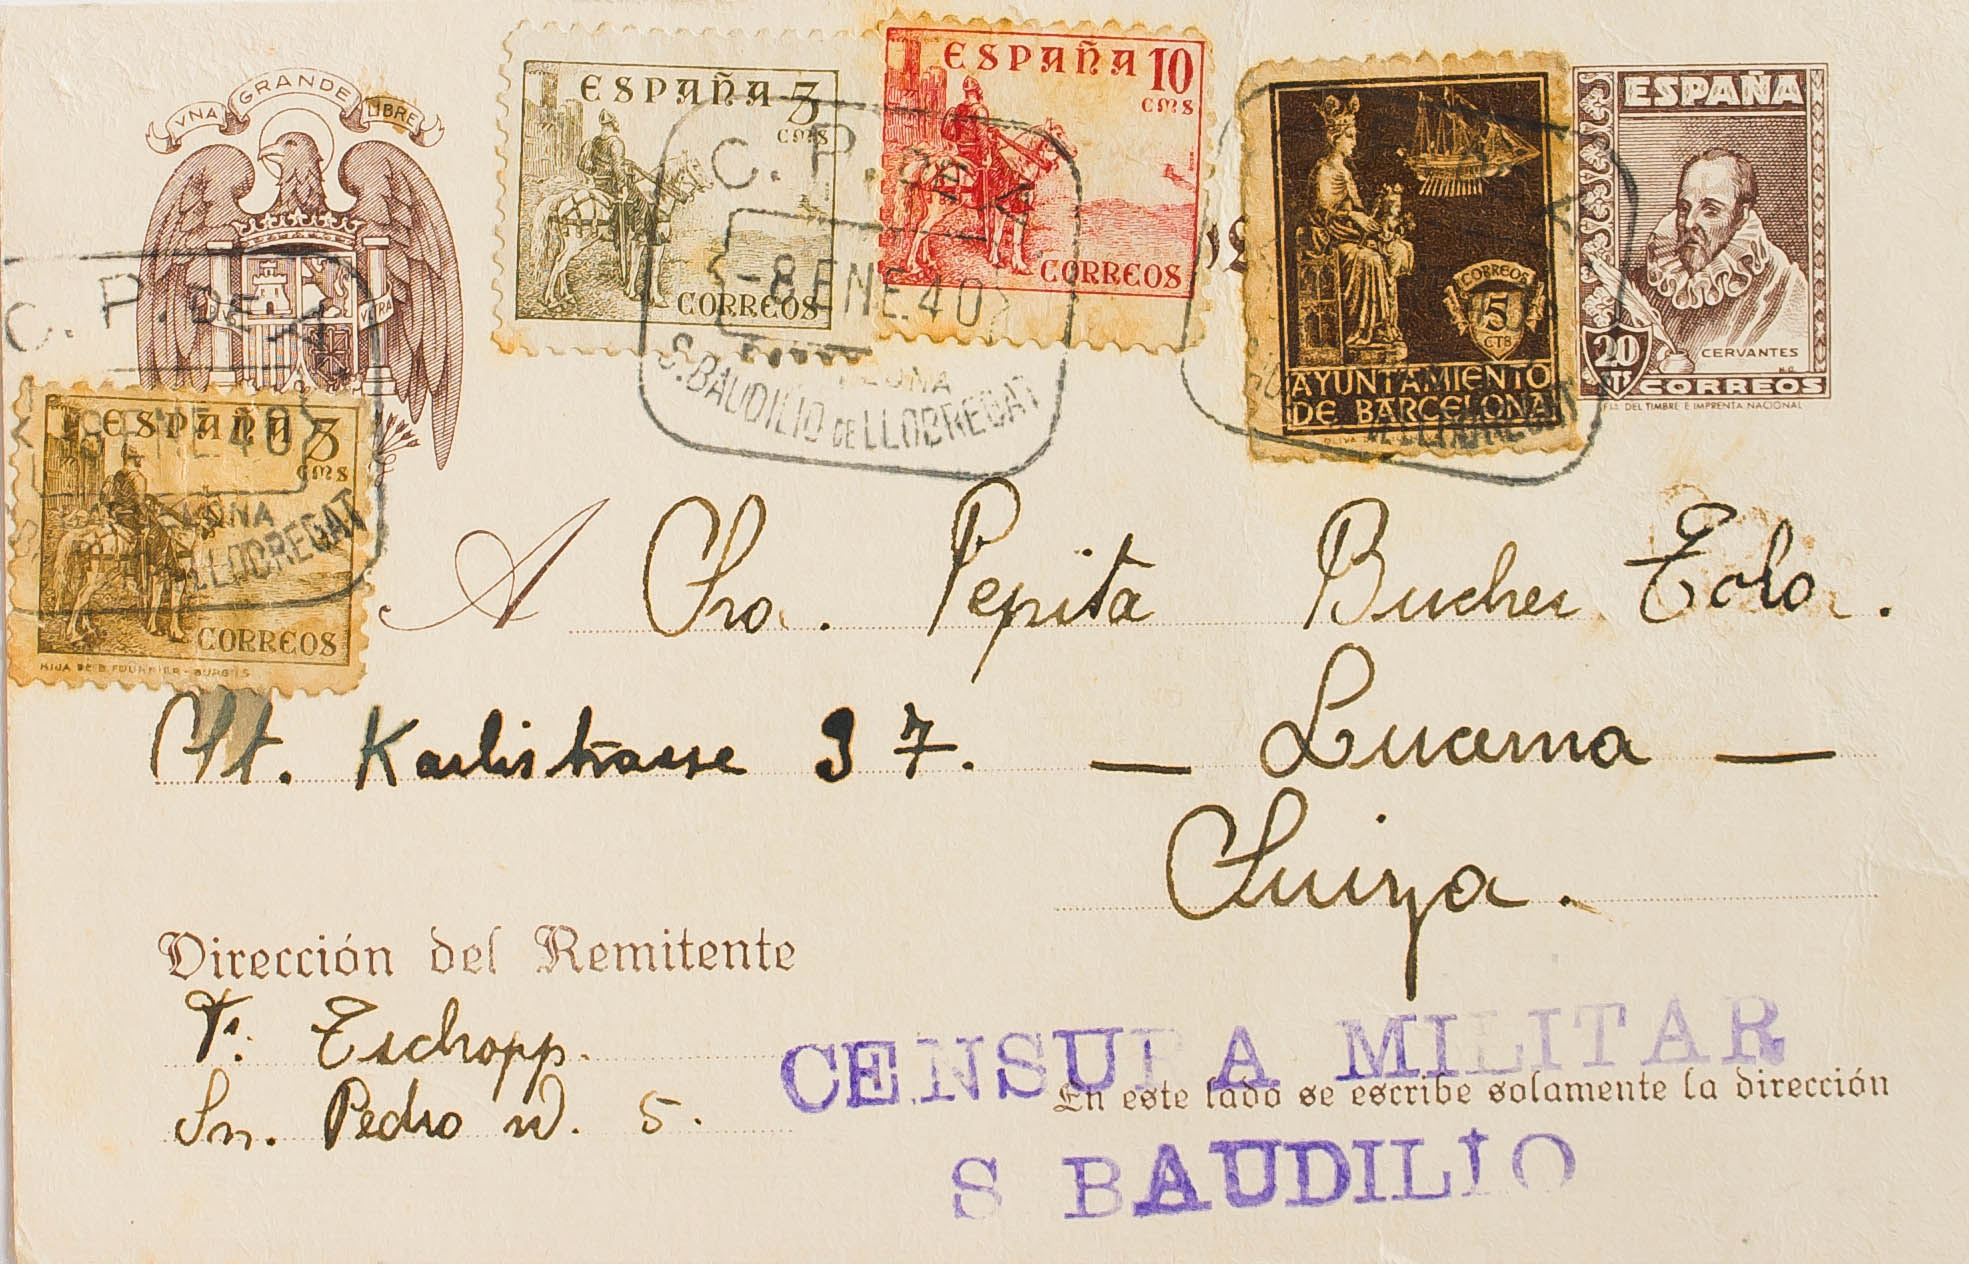 VNA GRANDE LIBRE
ESPAÑA 5
CMS
CORREOS
ESPAÑA 10
CMS
CORREOS
CORREOS
5
CTS
AYUNTAMIENTO
DE BARCELONA
ESPAÑA
CERVANTES
20
CTS CORREOS
DEL TIMBRE E IMPRENTA NACIONAL
C. P. DE
-8 ENE.40
S.BAUDILIO DE LLOBREGAT
ESPAÑA 5
CMS
CORREOS
HIJA DE B. FOURNIER - BURGOS
LLOBREGAT
A Sra. Pepita Bucher
St. Karlistrasse 37. — Lucerna —
Suiza.
Dirección del Remitente
F. Tschopp.
Sn. Pedro n. 5.
CENSURA MILITAR
En este lado se escribe solamente la dirección
S BAUDILIO